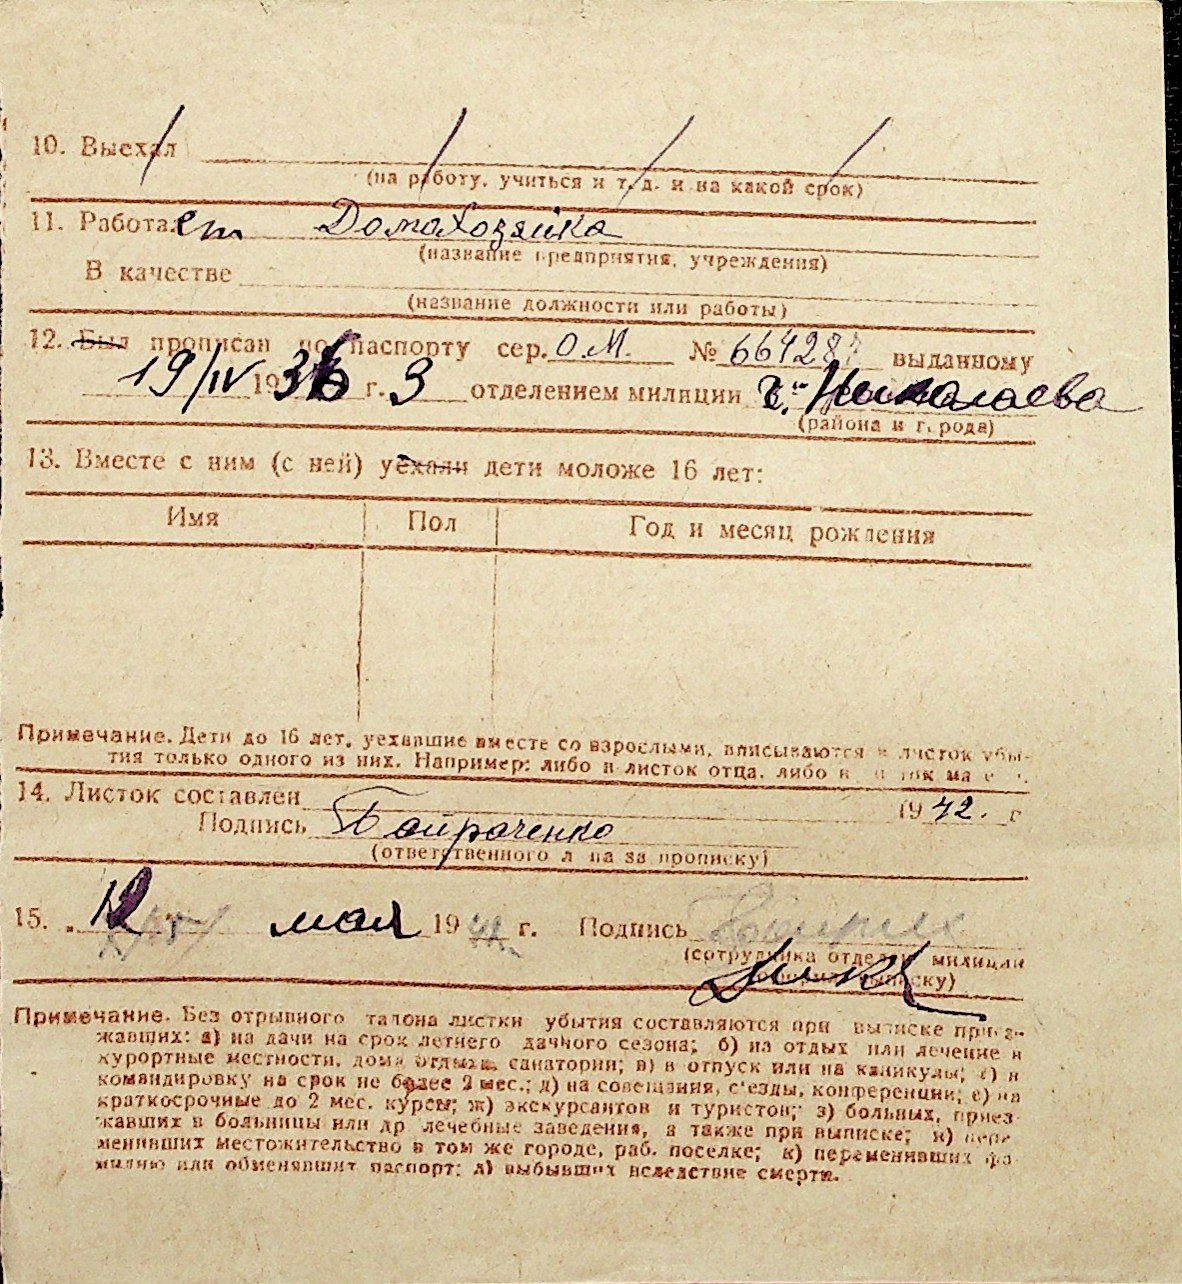 10. Выехал
(на работу, учиться и т. д. и на какой срок)
11. Работает Домохозяйка
(название предприятия, учреждения)
В качестве
(название должности или работы)
12. Был прописан по паспорту сер. О.М. № 664287 выданному
19/IV 1936 г. 3 отделением милиции г. Николаева
(района и города)
13. Вместе с ним (с ней) уехали дети моложе 16 лет:
Имя Пол Год и месяц рождения
Примечание. Дети до 16 лет, уехавшие вместе со взрослыми, вписываются в листок убы-
тия только одного из них. Например: либо в листок отца, либо в
14. Листок составлен 1942. г
Подпись Байраченко
(ответственного лица за прописку)
15. 12 мая 1942 г. Подпись
(сотрудника отдела милиции
выписку)
Примечание. Без отрывного талона листки убытия составляются при выписке приез-
жавших: а) на дачи на срок летнего дачного сезона; б) на отдых или лечение в
курортные местности, дома отдыха, санатории; в) в отпуск или на каникулы; г) в
командировку на срок не более 2 мес.; д) на совещания, с'езды, конференции; е) на
краткосрочные до 2 мес. курсы; ж) экскурсантов и туристов; з) больных, приез-
жавших в больницы или др лечебные заведения, а также при выписке; и) пере
менивших местожительство в том же городе, раб. поселке; к) переменивших фа
милию или обменявших паспорт; л) выбывших вследствие смерти.